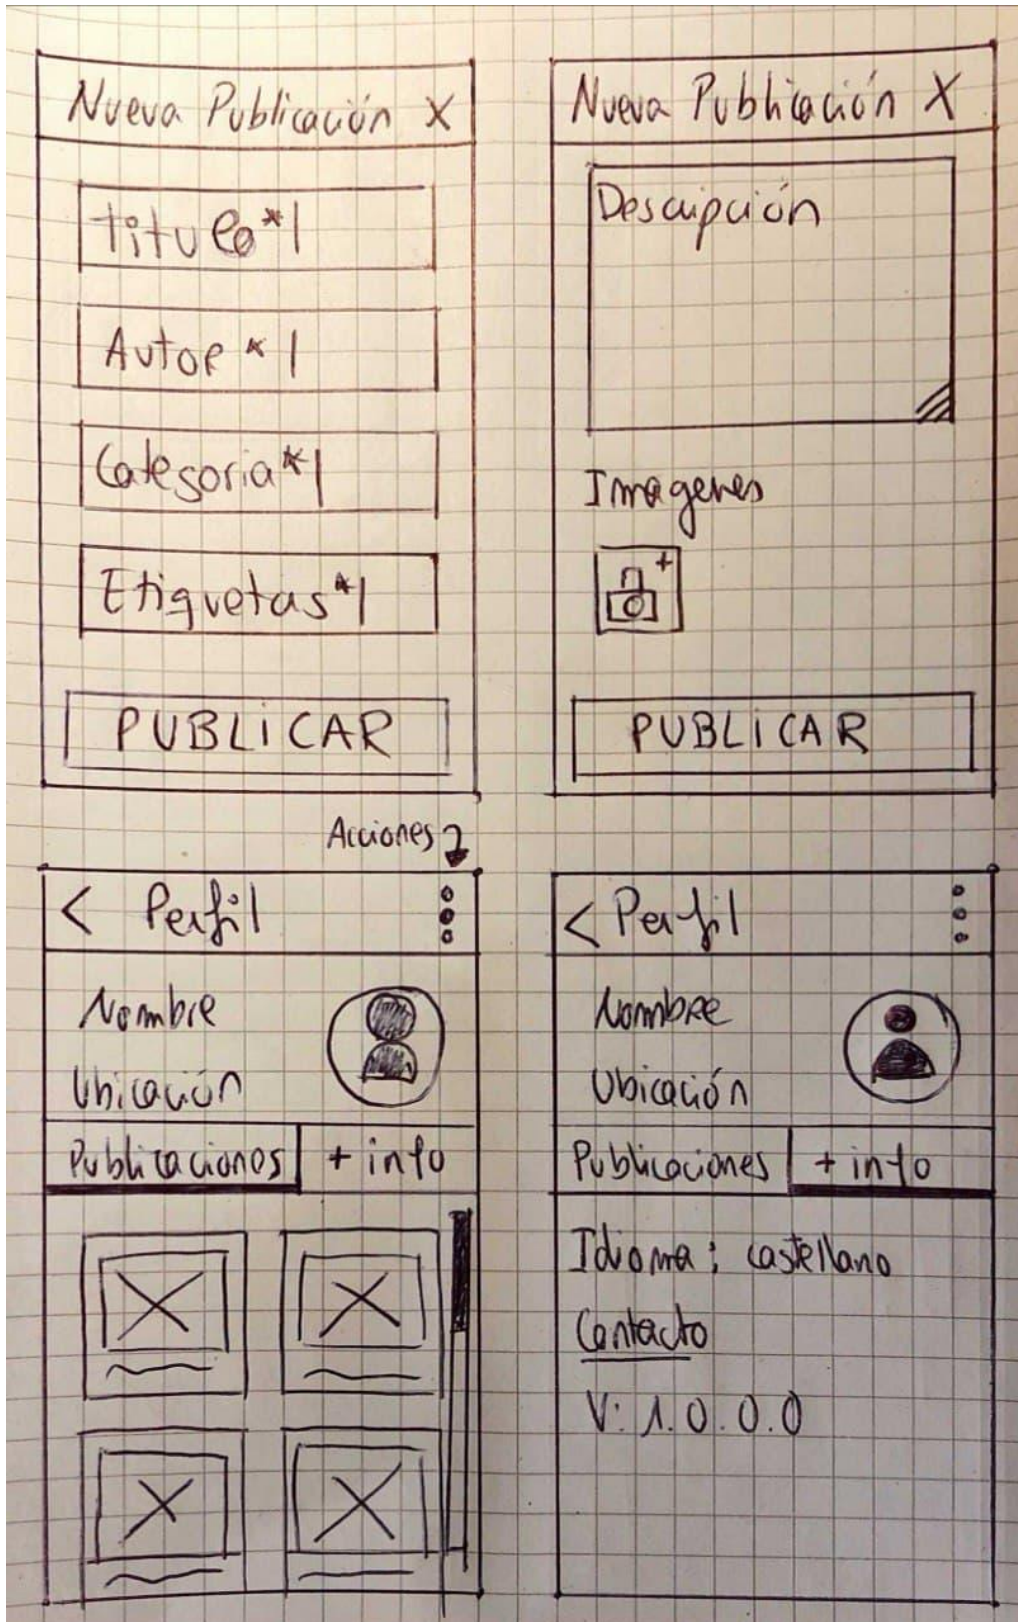 Nueva Publicación X
Titulo*|
Autor*|
Categoria*|
Etiquetas*|
PUBLICAR
Nueva Publicación X
Descripción
Imagenes
+
PUBLICAR
Acciones
< Perfil
Nombre
Ubicación
Publicaciones + info
< Perfil
Nombre
Ubicación
Publicaciones + info
Idioma: castellano
Contacto
V: 1.0.0.0